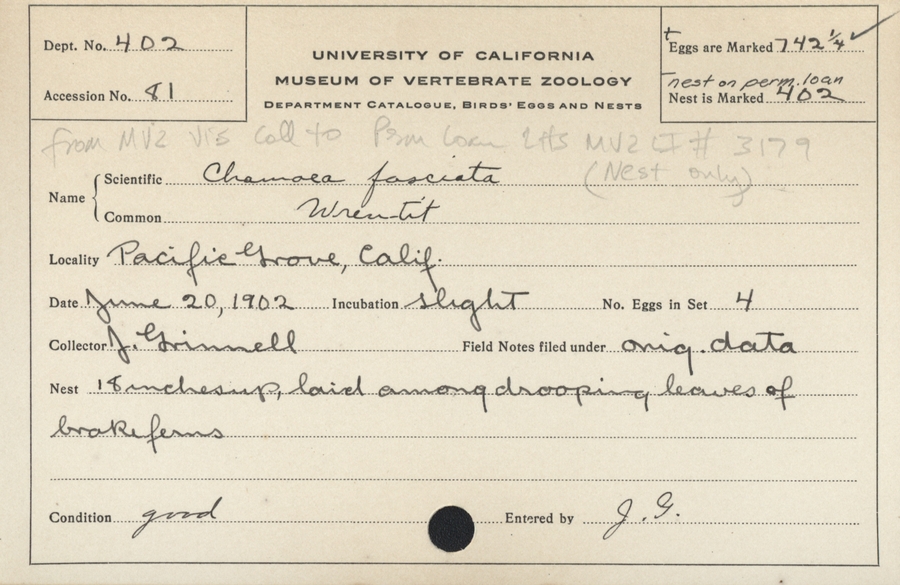 Dept. No. 402
Accession No. 81
UNIVERSITY OF CALIFORNIA
MUSEUM OF VERTEBRATE ZOOLOGY
DEPARTMENT CATALOGUE, BIRDS' EGGS AND NESTS
Eggs are Marked 742 1/4 ✓
nest on perm. loan
Nest is Marked 402
from MVZ Vis Coll to Perm Loan LHS MVZ LI # 3179
(Nest only)
Name
Scientific Chamaea fasciata
Common Wren-tit
Locality Pacific Grove, Calif.
Date June 20, 1902 Incubation slight No. Eggs in Set 4
Collector J. Grinnell Field Notes filed under orig. data
Nest 18 inches up, laid among drooping leaves of
brake ferns
Condition good Entered by J. G.